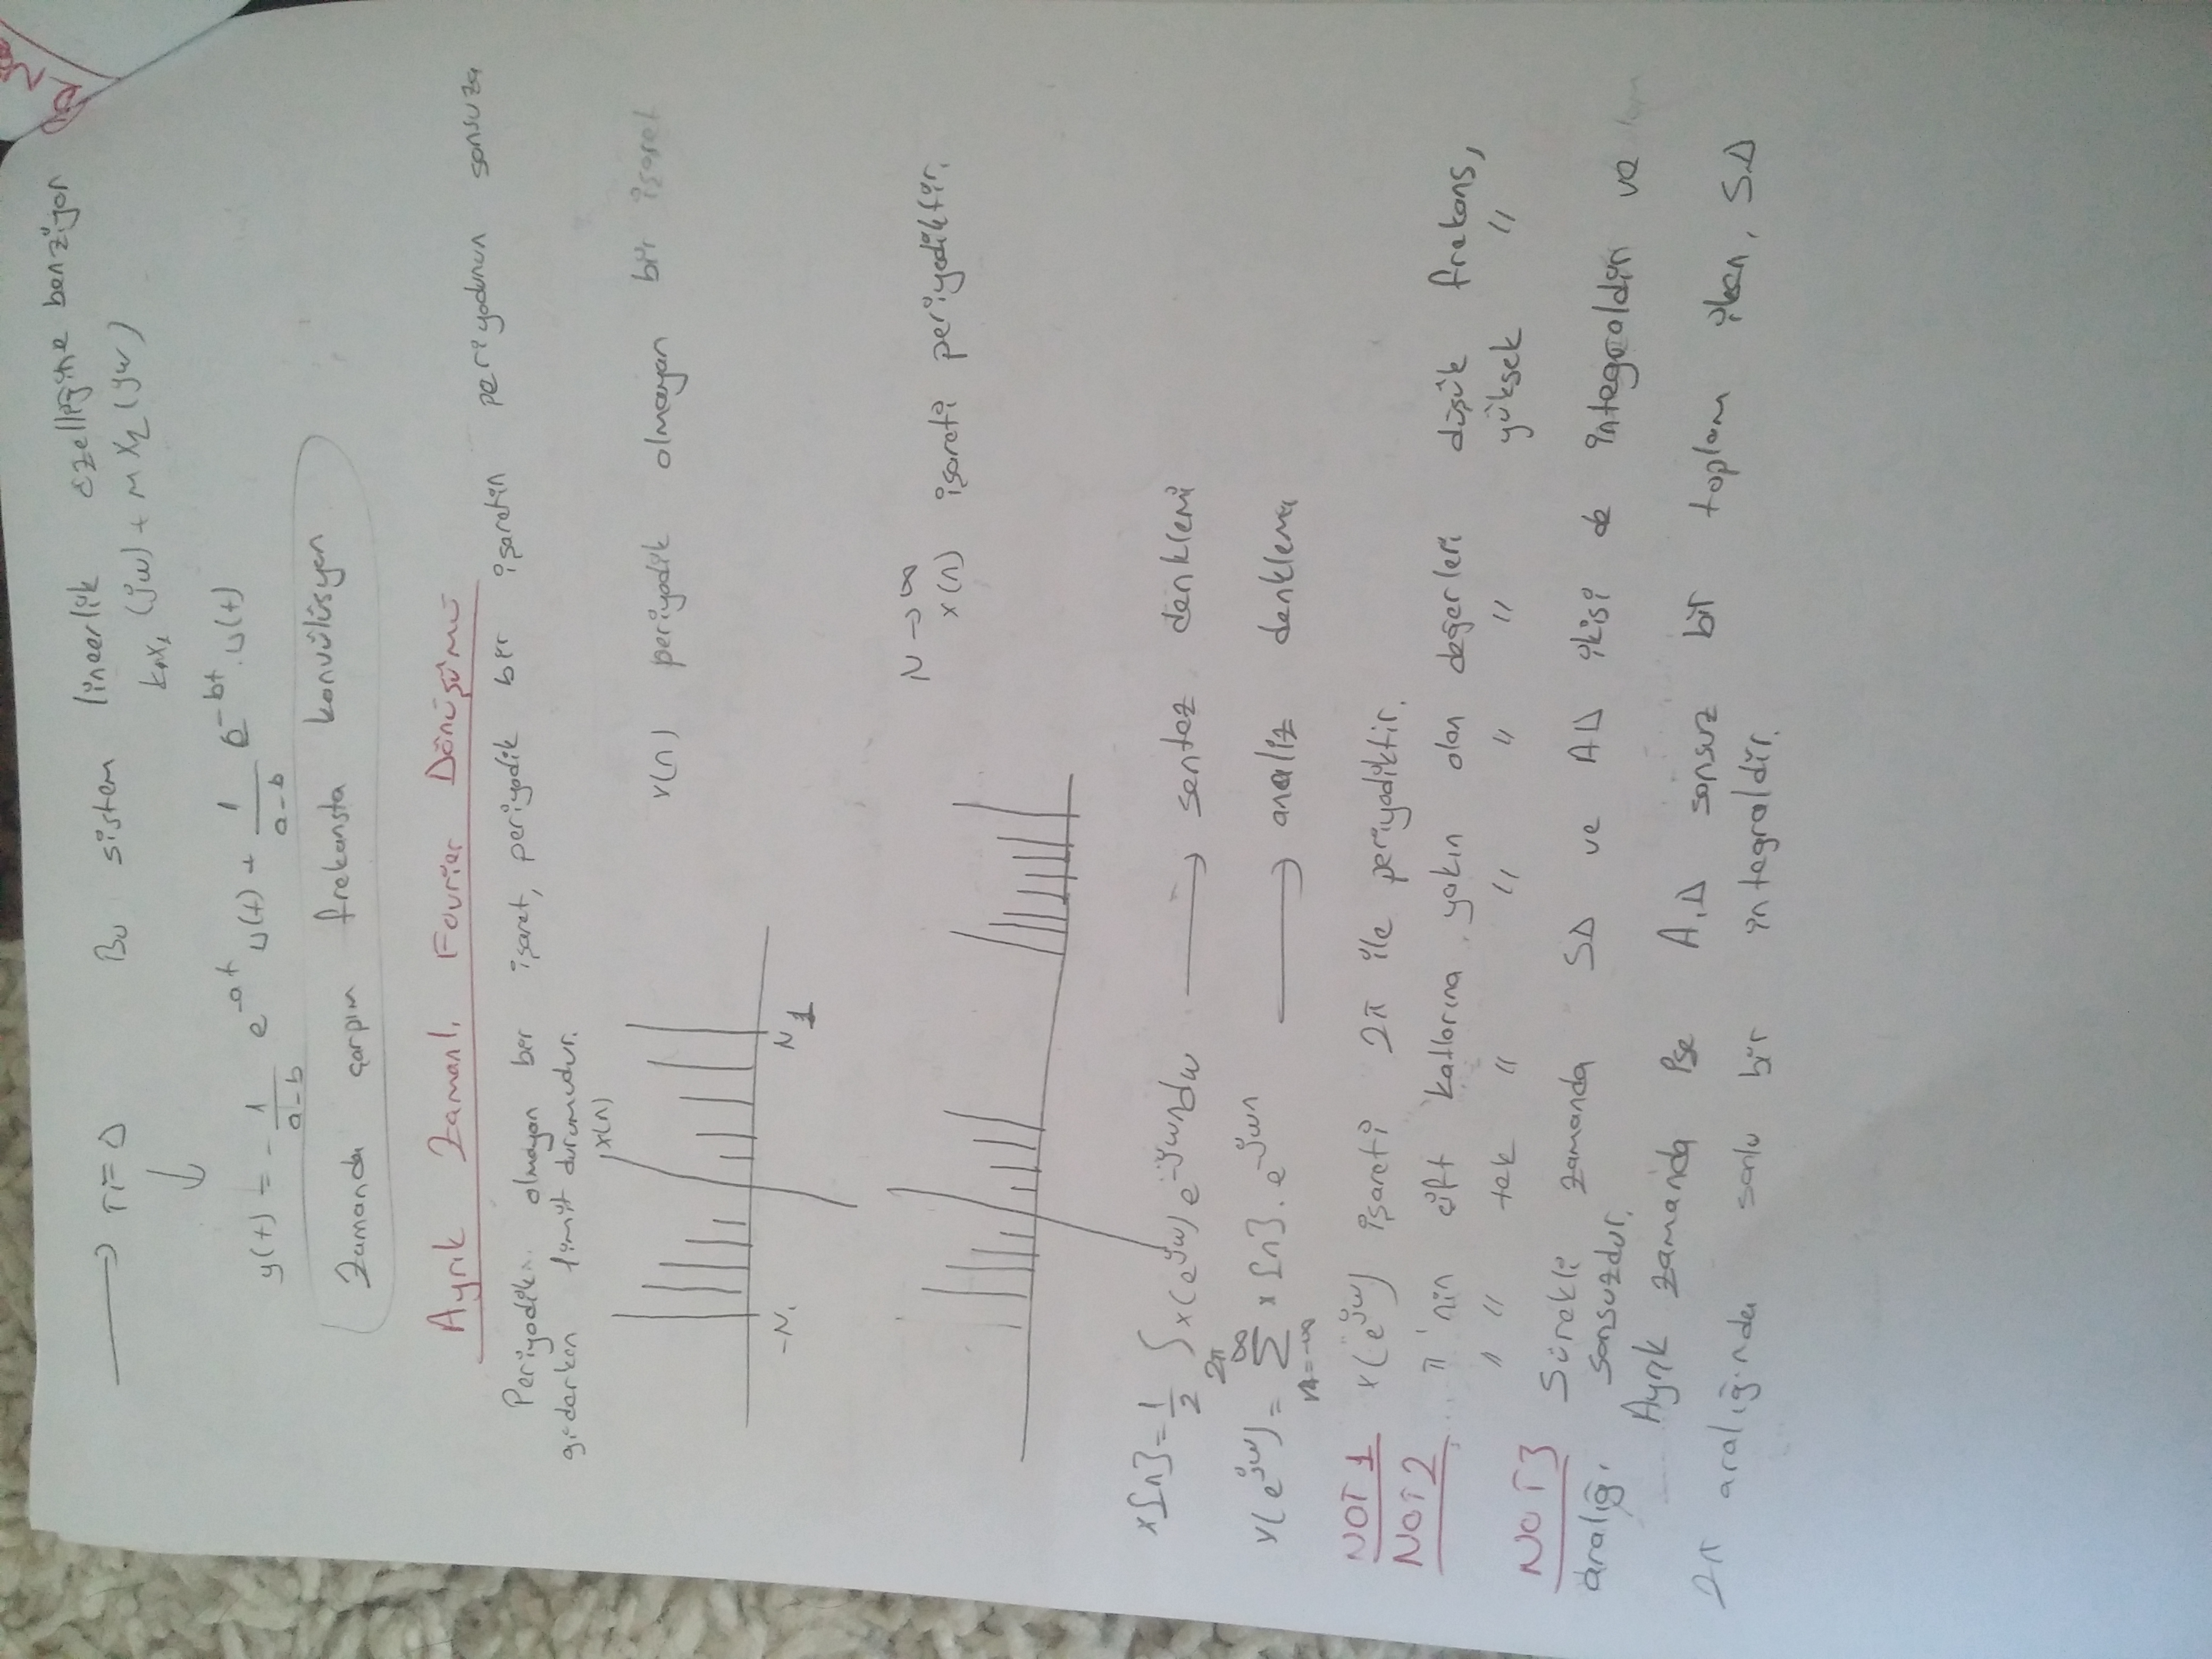 → TF=Δ Bu sistem lineerlik özelliğine benziyor
↓ knx₁ (jw) + m x₂ (jw)
y(t) = - 1/a-b e^-at u(t) + 1/a-b e^-bt . u(t)
Zamanda çarpım frekansta konvülüsyon
Ayrık Zamanlı Fourier Dönüşümü
Periyodik olmayan bir işaret, periyodik bir işaretin periyodunun sonsuza
giderken limit durumudur.
x(n)
x(n) periyodik olmayan bir işaret
-N₁ N1
N→∞
x(n) işareti periyodiktir.
x[n] = 1/2 ∫2π x(e^jw) e^-jwn dw → sentez denklemi
x(e^jw) = ∞ Σ n=-∞ x[n] . e^-jwn → analiz denklemi
NOT 1 x(e^jw) işareti 2π ile periyodiktir.
NOT 2 π'nin çift katlarına yakın olan değerleri düşük frekans,
" " tek " " " " yüksek "
NOT 3 Sürekli zamanda SD ve AD ikisi de integraldir ve
aralığı sonsuzdur.
Ayrık zamanda ise A.D sonsuz bir toplam iken, S.D
2π aralığında sonlu bir integraldir.